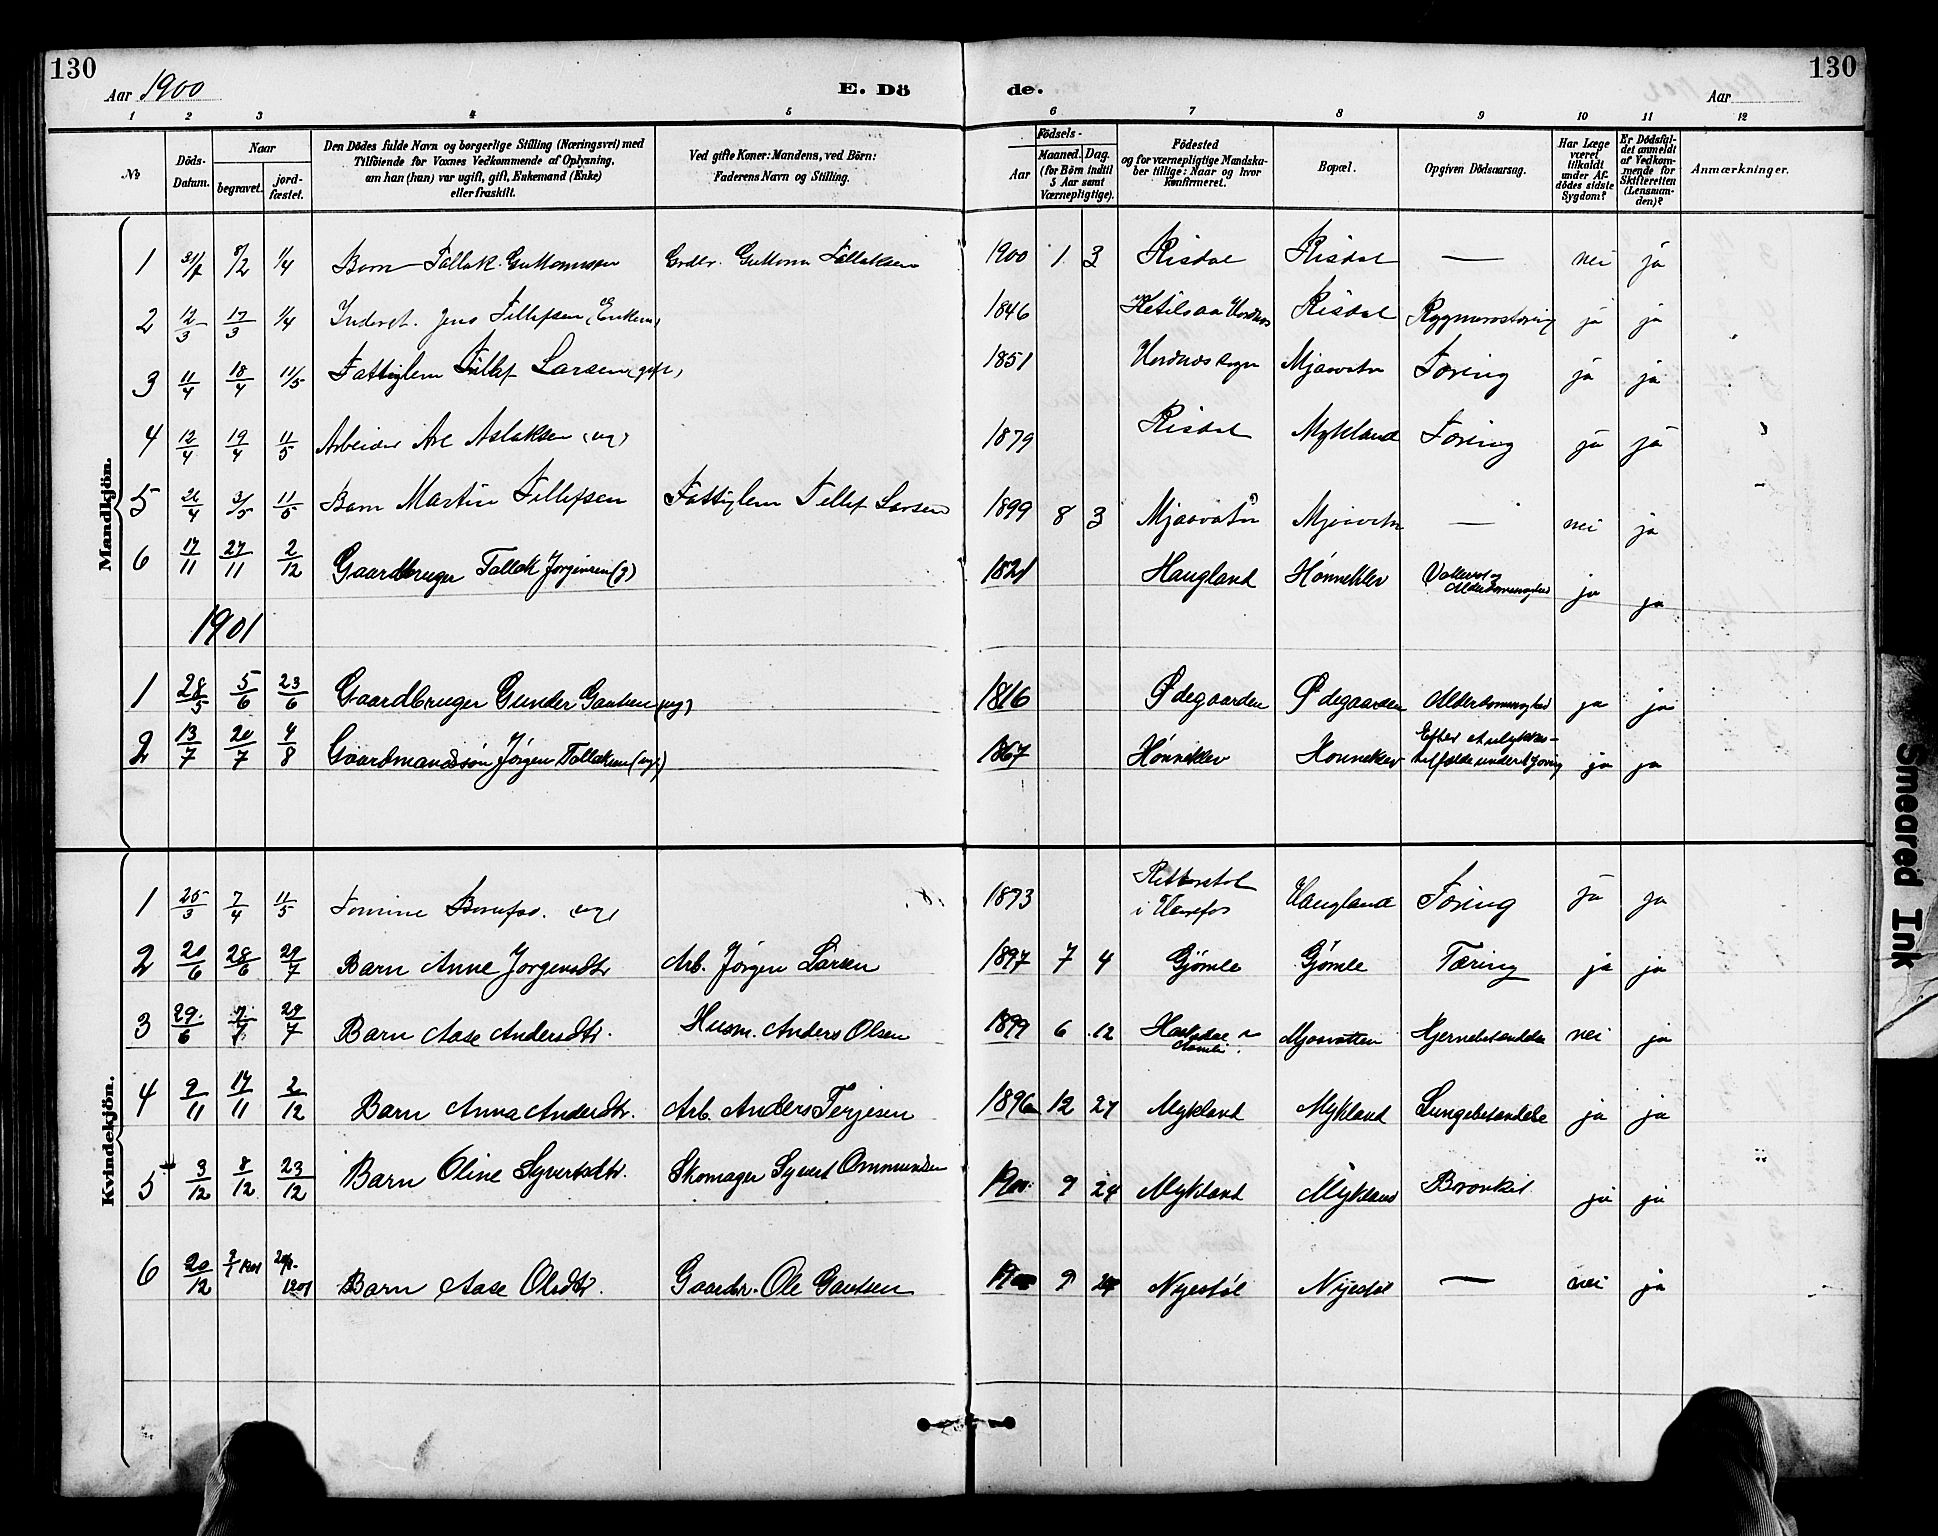 130
130
Aar 1900
E. Dö
de.
Aar
1 2 3 4 5 6 7 8 9 10 11 12
No
Döds-Datum.
Naar
begravet.
jord-fæstet.
Den Dödes fulde Navn og borgerlige Stilling (Næringsvei) med
Tilföiende for Voxnes Vedkommende af Oplysning,
om han (hun) var ugift, gift, Enkemand (Enke)
eller fraskilt.
Ved gifte Koner: Mandens, ved Börn:
Faderens Navn og Stilling.
Födsels-
Aar
Maaned. Dag.
(for Börn indtil
5 Aar samt
Værnepligtige).
Födested
og for værnepligtige Mandska-
ber tillige: Naar og hvor
konfirmeret.
Bopæl.
Opgiven Dödsaarsag.
Har Læge
været
tilkaldt
under Af-
dödes sidste
Sygdom?
Er Dödsfal-
det anmeldt
af Vedkom-
mende for
Skifteretten
(Lensman-
den)?
Anmærkninger.
Mandkjön.
1 8/2 1/4 Barn Tallak Guttormsen Grdbr. Guttorm Tallaksen 1900 1 3 Risdal Risdal — nei ja
2 12/3 17/3 1/4 Inderst. Jens Tellefsen (Enkem) 1846 Risdal ja ja
3 11/4 18/4 11/5 Fattiglem Tellef Larsen (gift) 1851 Mjaavatn Tæring ja ja
4 12/4 19/4 11/5 Arbeider Are Aslaksen (ug) 1879 Risdal Mykland Tæring ja ja
5 26/4 3/5 11/5 Barn Martin Tellefsen Fattiglem Tellef Larsen 1899 8 3 Mjaavatn Mjaavatn — nei ja
6 17/11 27/11 2/12 Gaardbruger Tallak Jørgensen (g) 1821 Haugland Hønneklev Alderdomssvaghed ja ja
1901
1 28/5 5/6 23/6 Gaardbruger Gunder Gautsen (ug) 1816 Ødegaarden Ødegaarden Alderdomssvaghed ja ja
2 13/7 20/7 4/8 Gaardmandssøn Jørgen Tallaksen (ug.) 1867 Hønneklev Hønneklev Efter et ulykkes-
tilfælde under ja ja
Kvindekjön.
1 25/3 7/4 11/5 (ug) 1893 Haugland Tæring ja ja
2 20/6 28/6 29/7 Barn Anne Jørgensdtr Arb. Jørgen Larsen 1897 7 4 Gjømle Gjømle Tæring ja ja
3 29/6 7/7 29/7 Barn Aase Andersdtr. Husm. Anders Olsen 1899 6 12 Mjaavatten Hjernebetændelse nei ja
4 9/11 17/11 2/12 Barn Anna Andersdtr. Arb. Anders Terjesen 1896 12 27 Mykland Mykland Lungebetændelse ja ja
5 3/12 8/12 23/12 Barn Oline Syvertsdtr. Skomager Syvert Ommundsen 1900 9 24 Mykland Mykland Bronkit ja ja
6 20/12 Barn Aase Olsdtr. Gaardbr. Ole Gautsen 1900 9 Nyestøl Nyestøl — nei ja
Smeared Ink